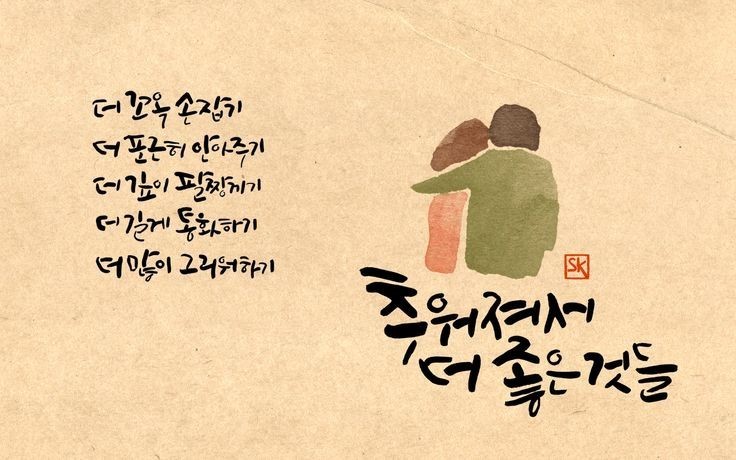 더 꼬옥 손잡기
더 포근히 안아주기
더 깊이 팔짱끼기
더 길게 통화하기
더 많이 그리워하기
SK
추워져서
더 좋은것들